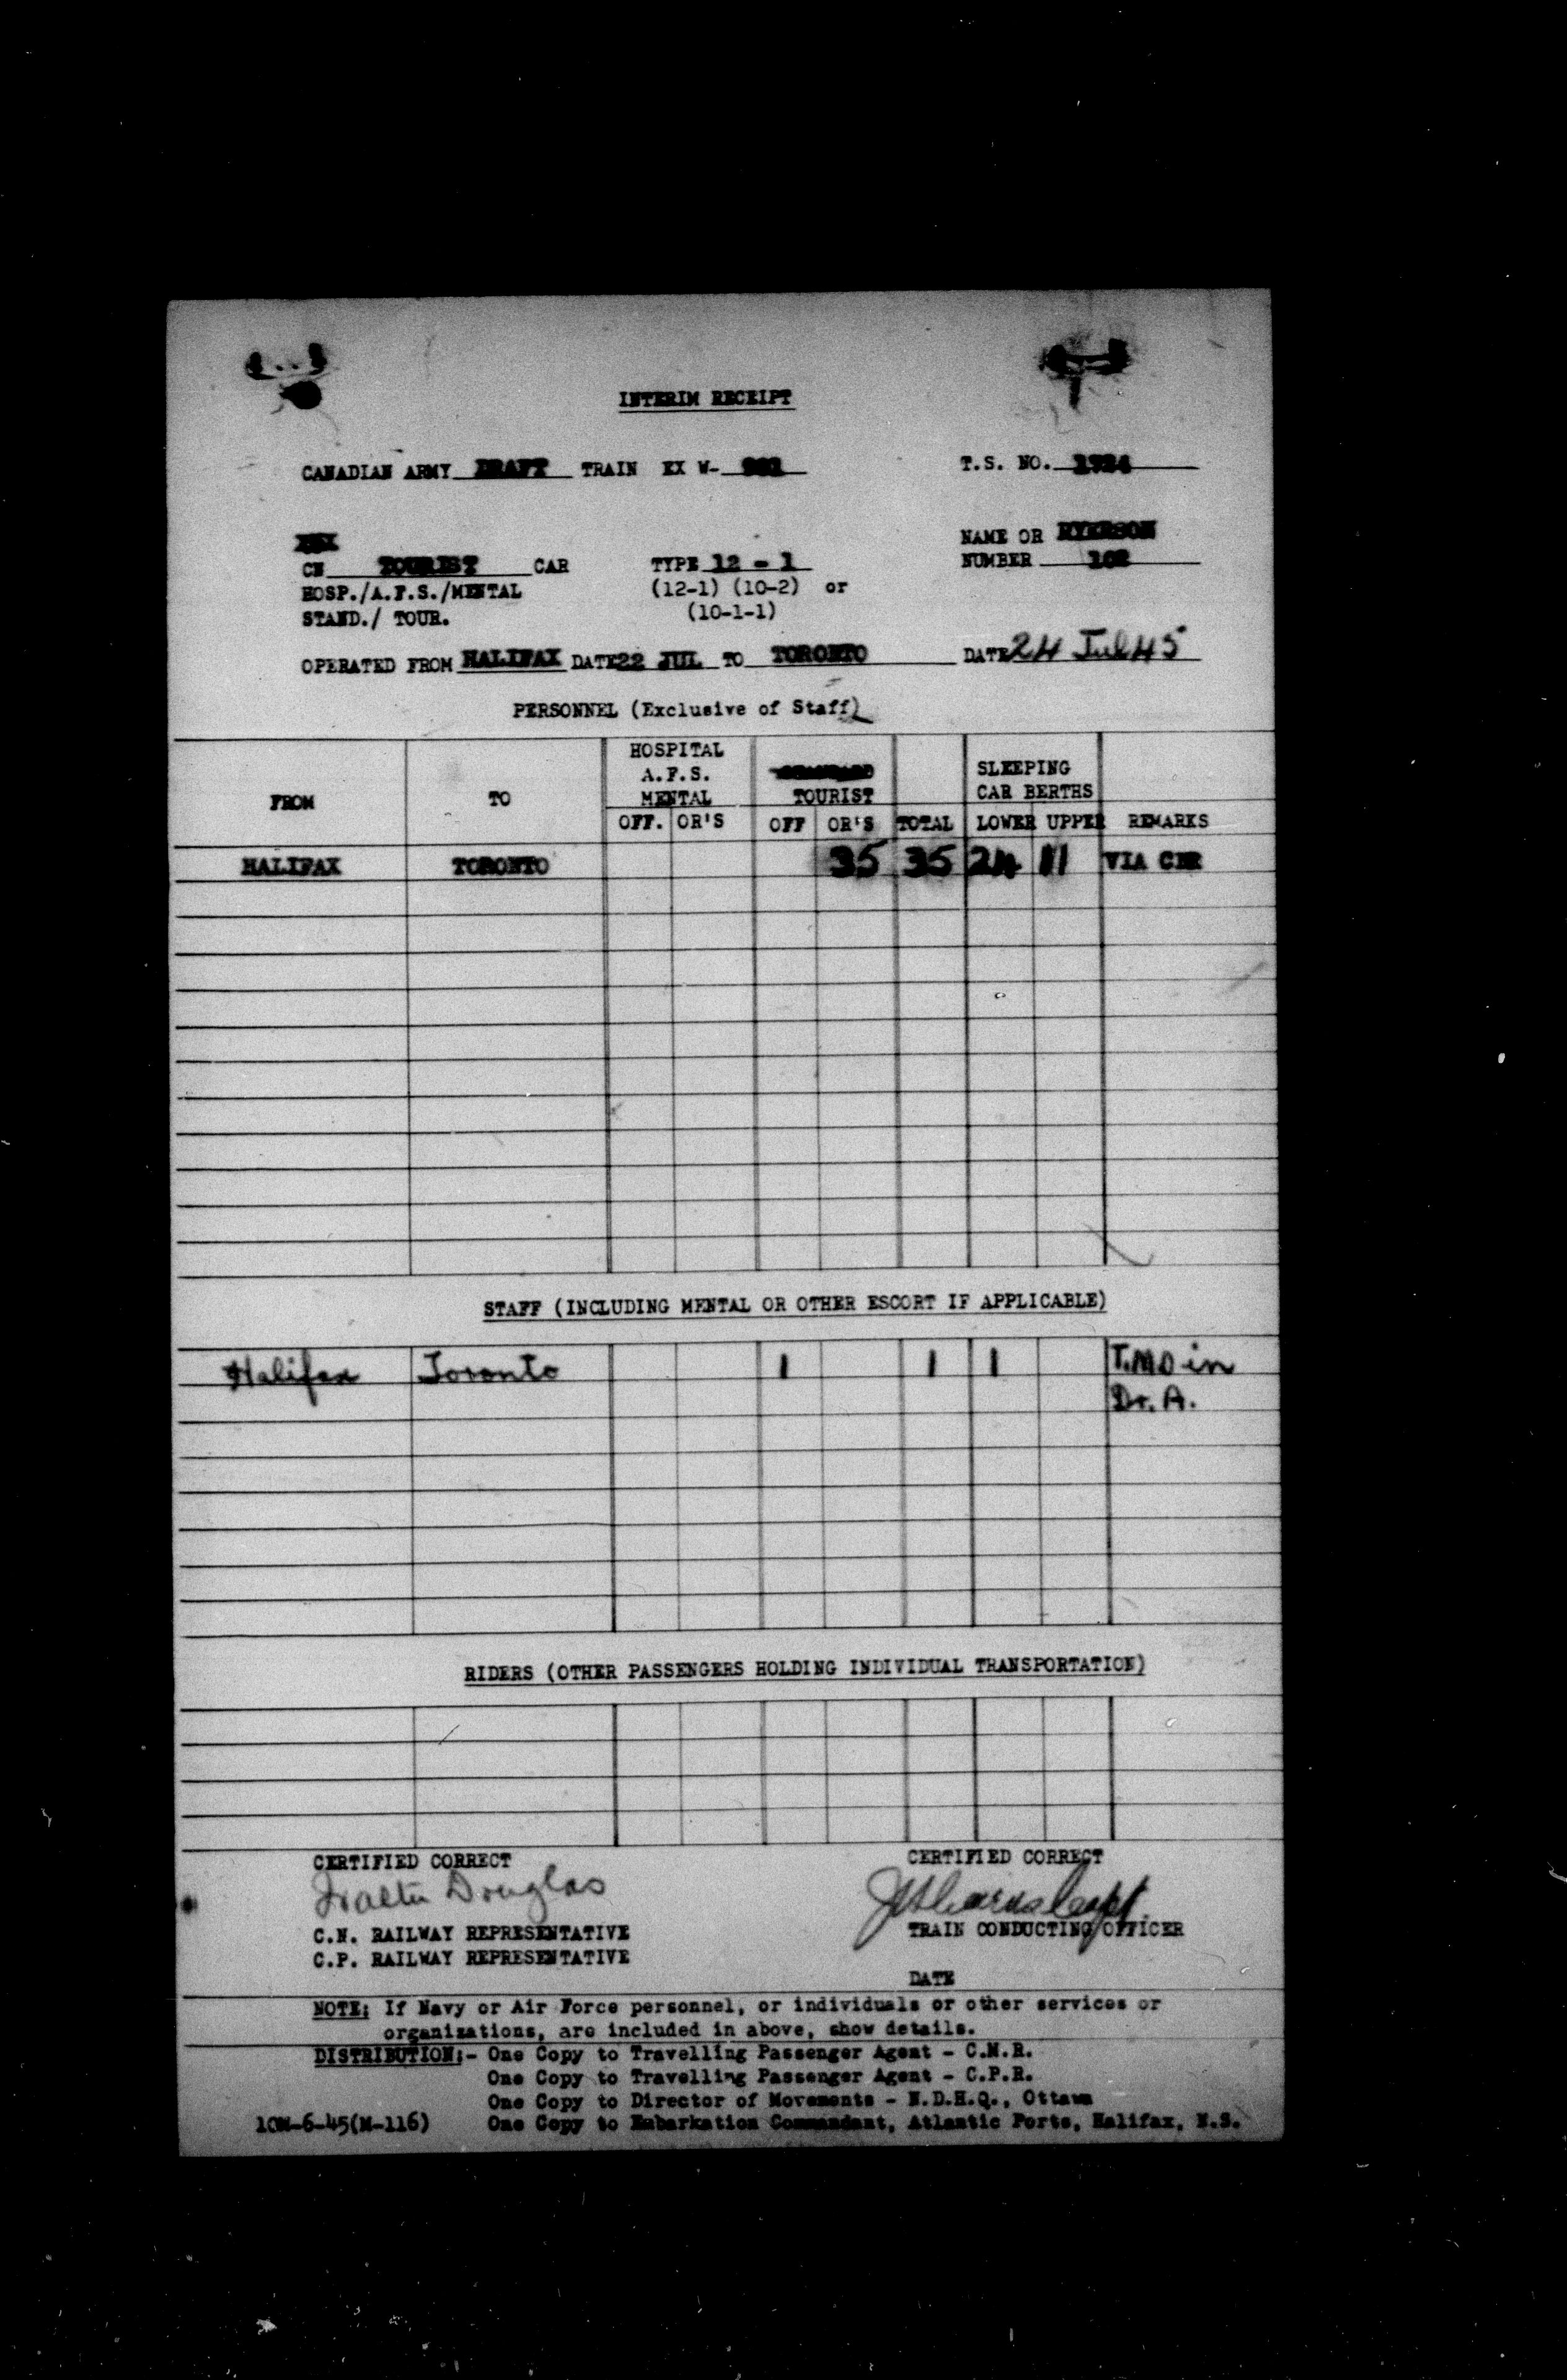 INTERIM RECEIPT
CANADIAN ARMY DRAFT TRAIN EX W- T.S. NO.
NAME OR RYERSON
CN TOURIST CAR TYPE 12 - 1 NUMBER 102
HOSP./A.F.S./MENTAL (12-1) (10-2) or
STAND./ TOUR. (10-1-1)
OPERATED FROM HALIFAX DATE 22 JUL TO TORONTO DATE 24 Jul 45
PERSONNEL (Exclusive of Staff)
HOSPITAL
A.F.S. SLEEPING
FROM TO MENTAL TOURIST CAR BERTHS
OFF. OR'S OFF OR'S TOTAL LOWER UPPER REMARKS
HALIFAX TORONTO 35 35 24 11 VIA CNR
STAFF (INCLUDING MENTAL OR OTHER ESCORT IF APPLICABLE)
Halifax Toronto 1 1 1 T.M.O in
Dr. A.
RIDERS (OTHER PASSENGERS HOLDING INDIVIDUAL TRANSPORTATION)
CERTIFIED CORRECT CERTIFIED CORRECT
Walter Douglas
C.N. RAILWAY REPRESENTATIVE TRAIN CONDUCTING OFFICER
C.P. RAILWAY REPRESENTATIVE
DATE
NOTE: If Navy or Air Force personnel, or individuals or other services or
organizations, are included in above, show details.
DISTRIBUTION:- One Copy to Travelling Passenger Agent - C.N.R.
One Copy to Travelling Passenger Agent - C.P.R.
One Copy to Director of Movements - N.D.H.Q., Ottawa
10M-6-45(M-116) One Copy to Embarkation Commandant, Atlantic Ports, Halifax, N.S.